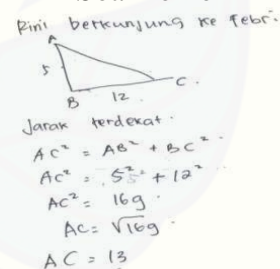 Rini berkunjung ke febri
A
5
B 12 C.
Jarak terdekat.
AC² = AB² + BC²
AC² = 5² + 12²
AC² = 169.
AC = √169.
AC = 13